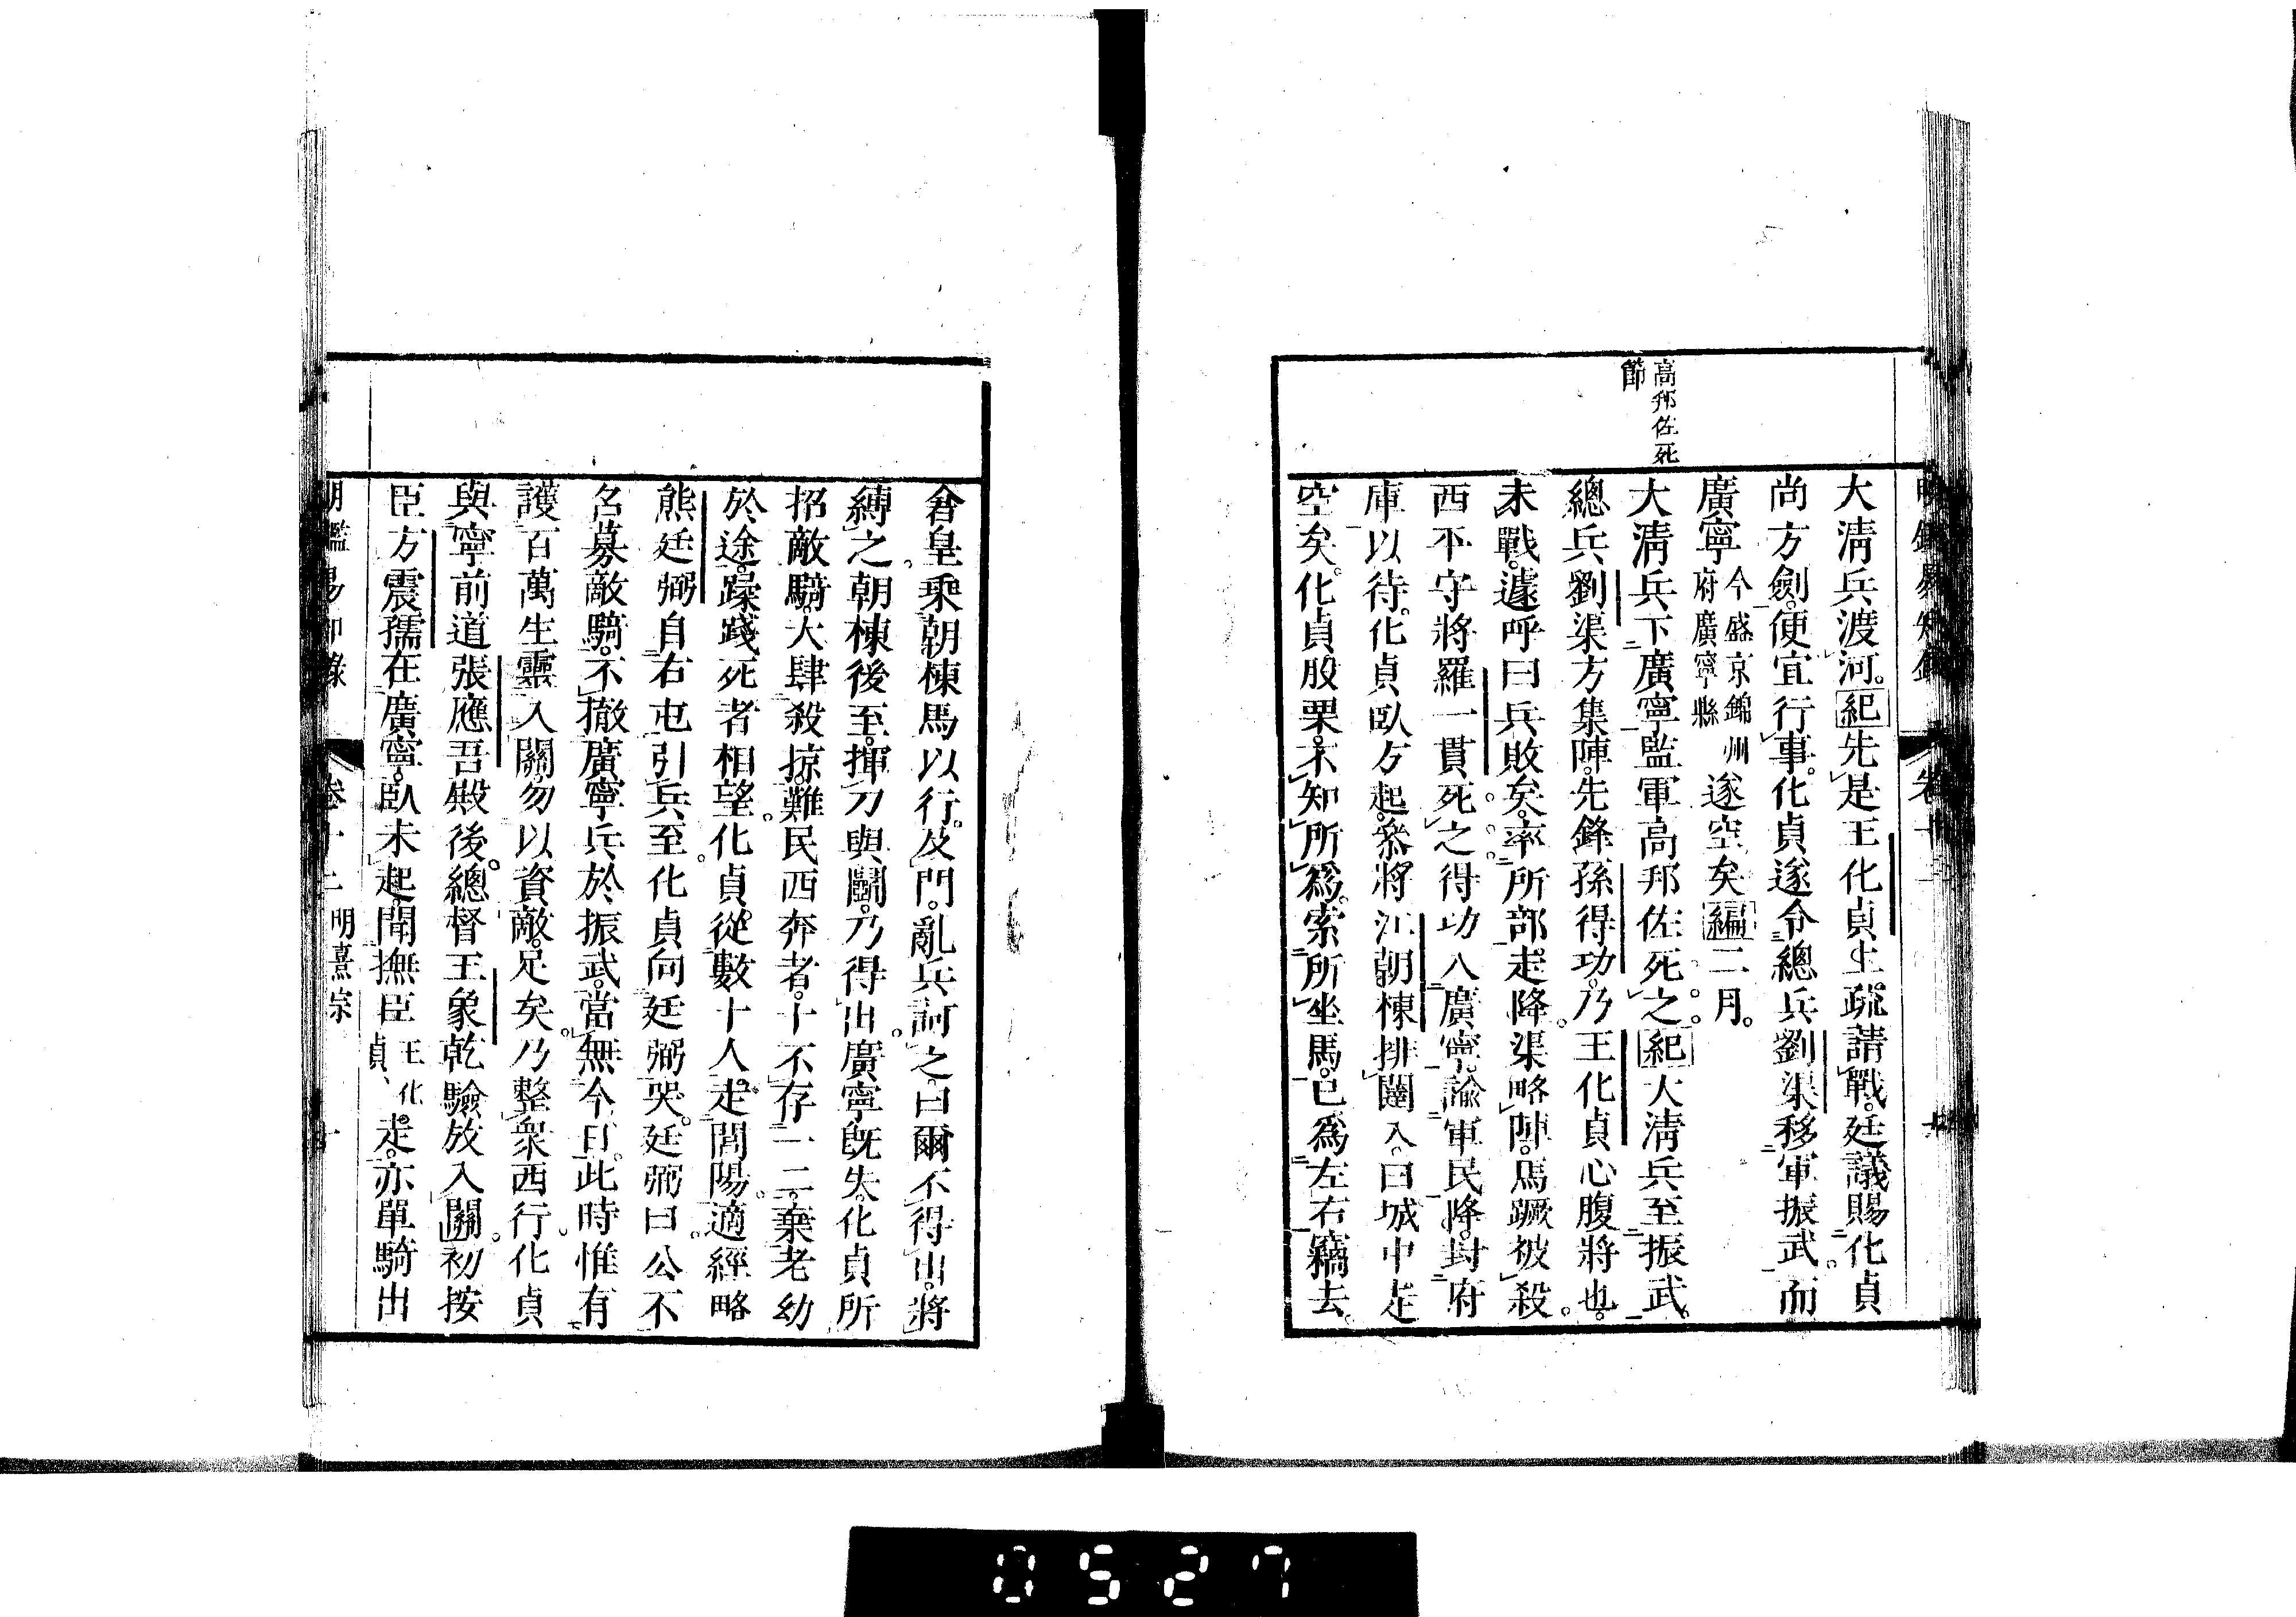 明鑑易知錄 卷十二
高邦佐死
節
大淸兵渡河。紀先是王化貞上疏請戰。廷議賜化貞
尚方劍。便宜行事。化貞遂令總兵劉渠移軍振武。而
廣寧今盛京錦州府廣寧縣遂空矣編二月。
大淸兵下廣寧監軍高邦佐死之。紀大淸兵至振武。
總兵劉渠方集陣。先鋒孫得功。乃王化貞心腹將也。
未戰。遽呼曰兵敗矣。率所部走降。渠略陣。馬蹶被殺。
西平守將羅一貫死之。得功入廣寧。諭軍民降。封府
庫以待。化貞臥方起。參將江朝棟排闥入。曰城中走
空矣。化貞股栗。不知所爲。索所坐馬。已爲左右竊去。
倉皇乘朝棟馬以行。及門。亂兵訶之。曰爾不得出。將
縛之。朝棟後至。揮刀與鬬。乃得出。廣寧旣失。化貞所
招敵騎。大肆殺掠。難民西奔者。十不存一二。棄老幼
於途。蹂踐死者相望。化貞。從數十人。走閭陽。適經略
熊廷弼自右屯引兵至。化貞向廷弼哭。廷弼曰。公不
召募敵騎。不撤廣寧兵於振武。當無今日。此時惟有
護百萬生靈入關。勿以資敵。足矣。乃整衆西行。化貞
與寧前道張應吾殿後。總督王象乾驗放入關。初按
臣方震孺在廣寧。臥未起。聞撫臣王化貞、走。亦單騎出
明鑑易知錄 卷十二 明熹宗 十